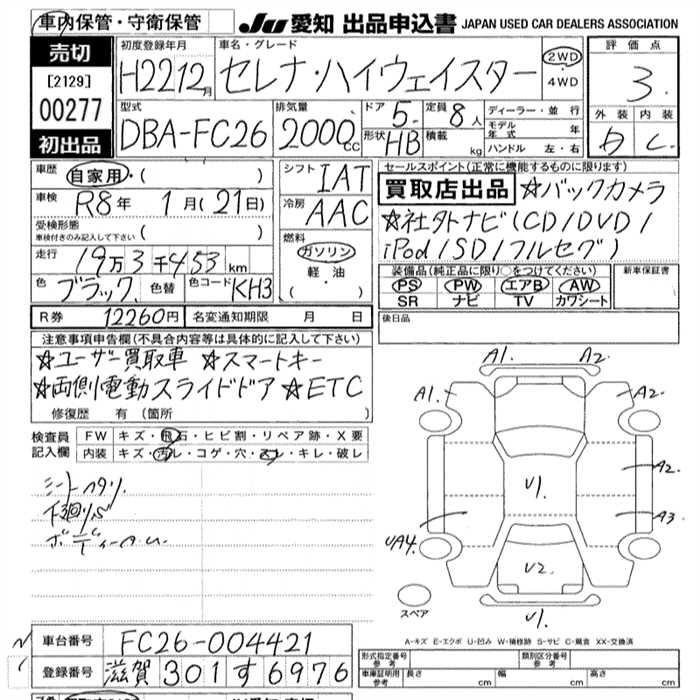 車内保管・守衛保管
JU 愛知 出品申込書 JAPAN USED CAR DEALERS ASSOCIATION
売切
[2129]
00277
初出品
初度登録年月 H22 12月
車名・グレード セレナ・ハイウェイスター
2WD・4WD
評価点 3
外装 内装 C
型式 DBA-FC26
排気量 2000cc
ドア 5 定員 8人
形状 HB 積載 kg
ディーラー・並行
モデル年式 年
ハンドル 左・右
車歴 自家用・( )
車検 R8年 1月(21日)
受検形態 ( )
車検付きのみ記入して下さい
走行 19万3千453km
色 ブラック 色替 色コード KH3
シフト IAT
冷房 AAC
燃料 ガソリン
軽油
( ・ )
セールスポイント(正常に機能するものに限ります)
買取店出品 ☆バックカメラ
☆社外ナビ(CD/DVD/
iPod/SD/フルセグ)
装備品(純正品に限り○をつけてください) 新車保証書
PS PW エアB AW
SR ナビ TV カワシート
R券 12260円 名変通知期限 月 日
後日品
注意事項申告欄(不具合内容等は具体的に記入して下さい)
☆ユーザー買取車 ☆スマートキー
☆両側電動スライドドア ☆ETC
修復歴 有(箇所 )
検査員記入欄
FW キズ・飛石・ヒビ割・リペア跡・X要
内装 キズ・汚レ・コゲ・穴・スレ・キレ・破レ
シートヘタリ
下廻りS
A1. A2.
A1. A2.
V1. A2
A3
UA4
V2.
V1.
スペア
A-キズ E-エクボ U-凹み W-補修跡 S-サビ C-腐食 XX-交換済
車台番号 FC26-004421
登録番号 滋賀 301 す 6976
形式指定番号 参考 類別区分番号 参考
車庫証明用 参考 長さ cm 幅 cm 高さ cm